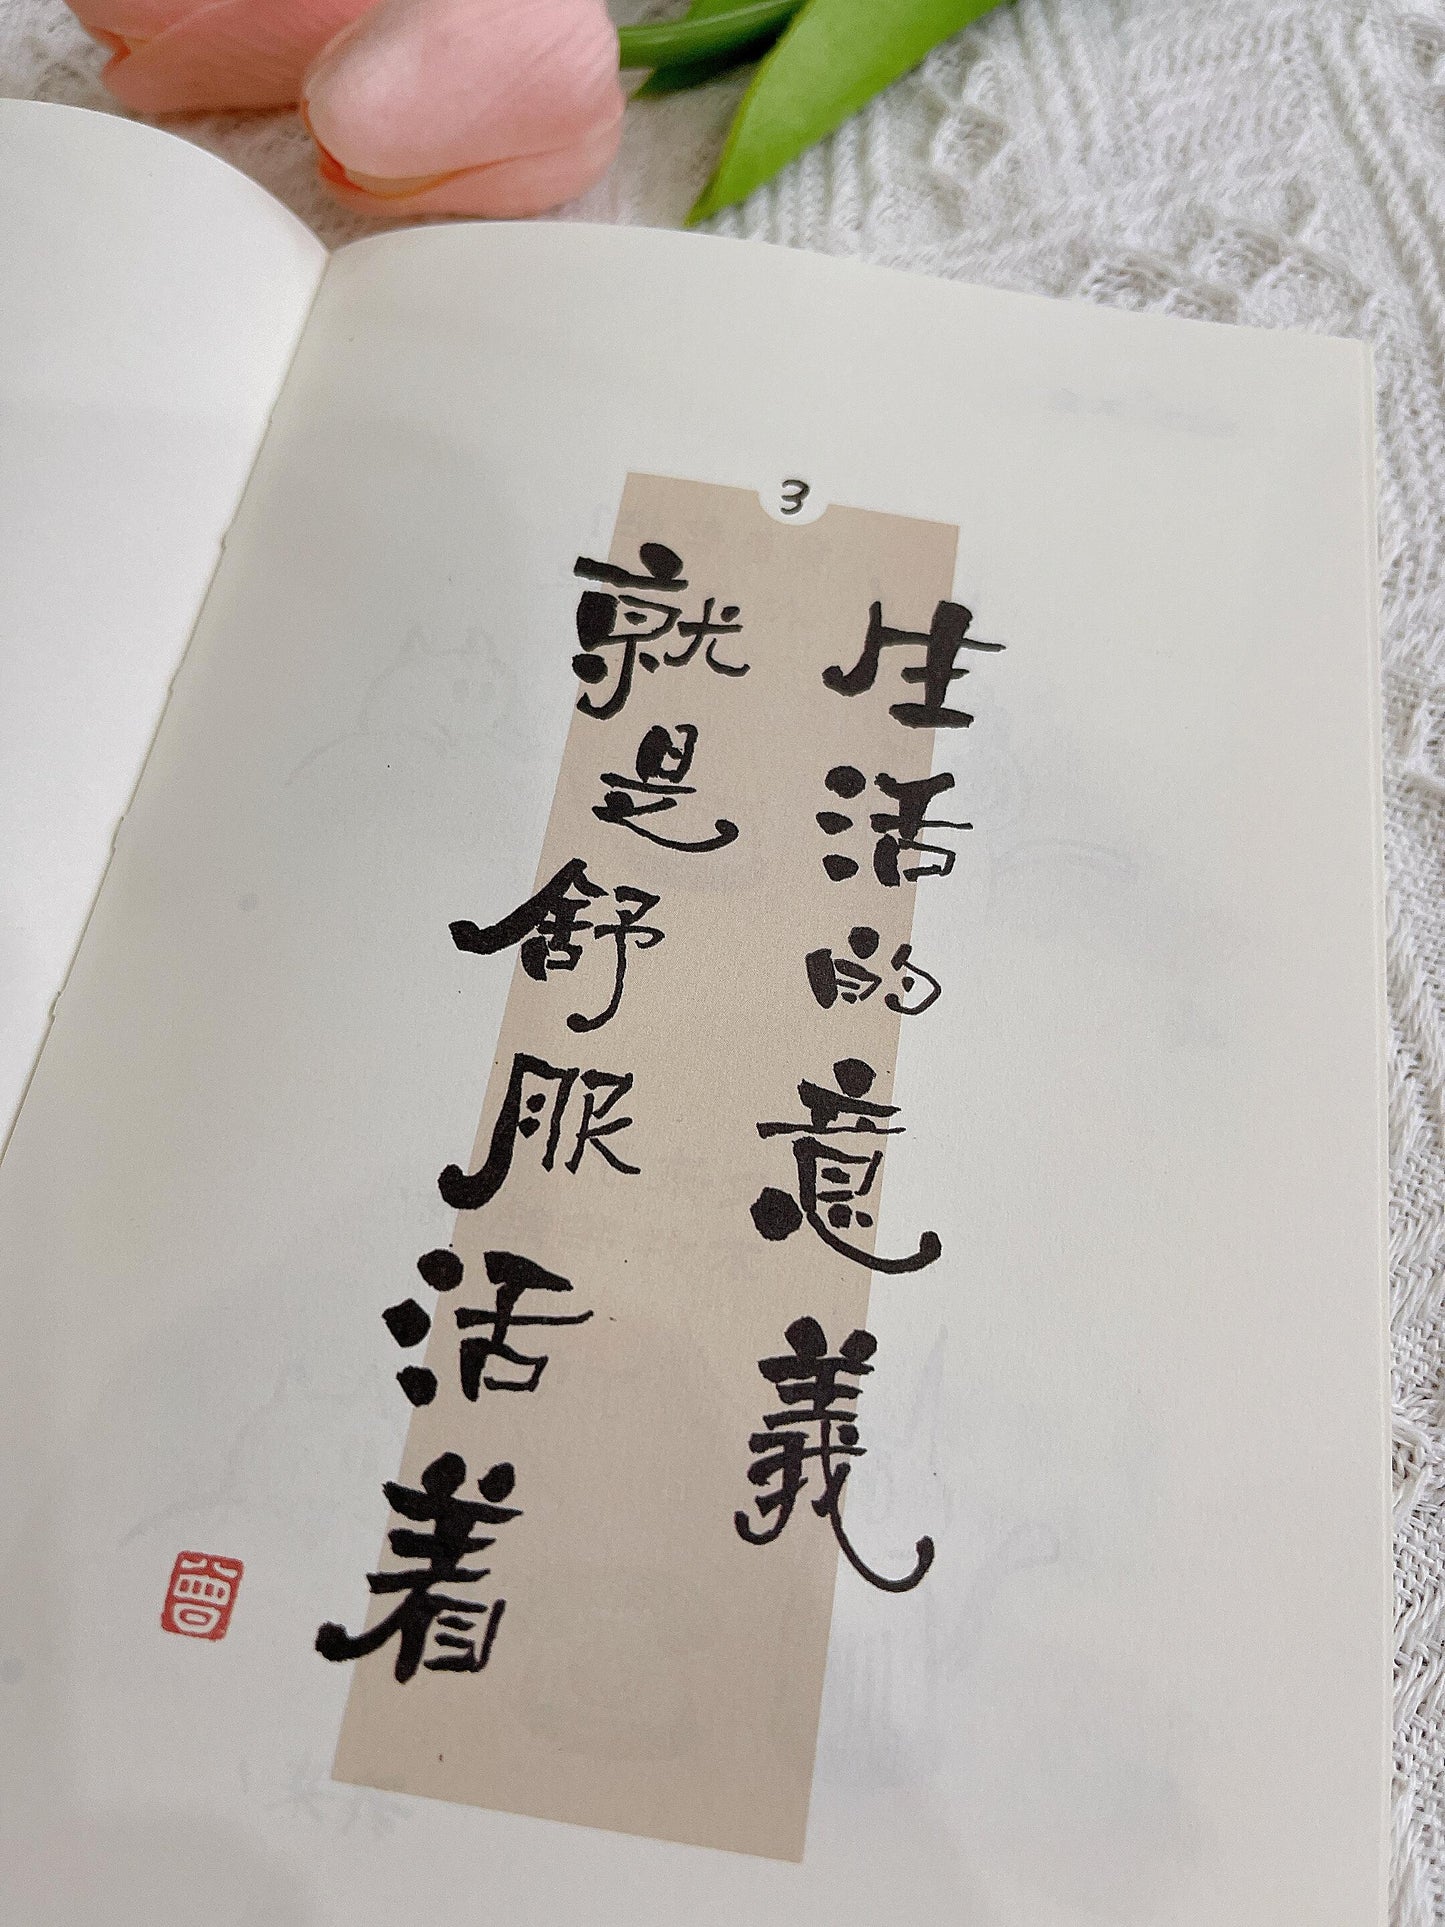 3
生活的意義
就是舒服活着
曾